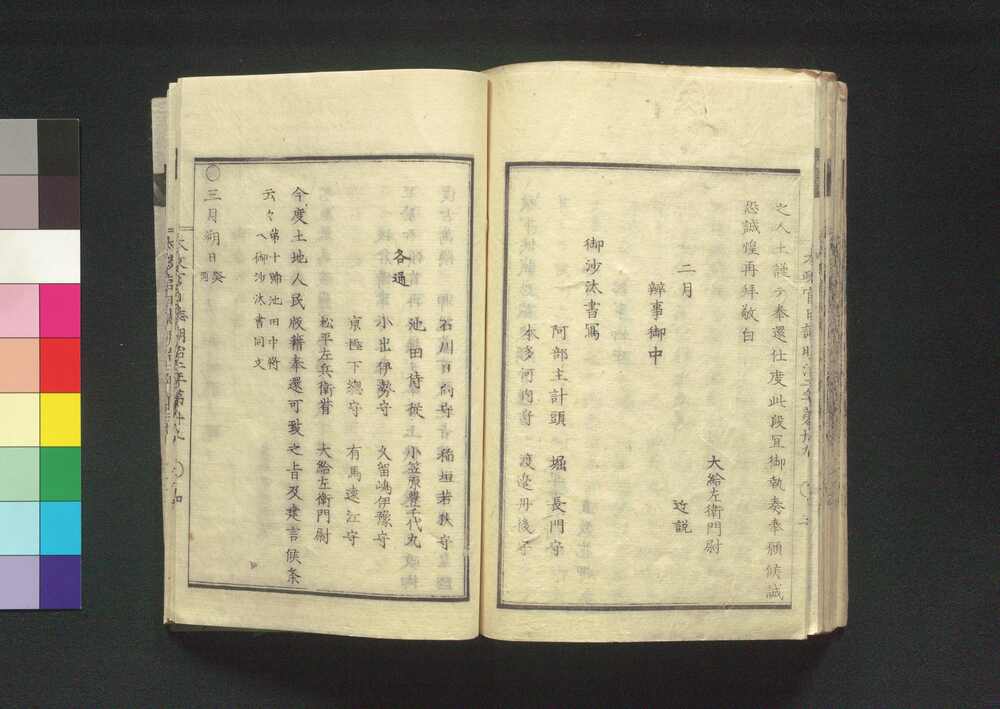 之人土謹テ奉還仕度此段冝御執奏奉願候誠
恐誠煌再拜敬白
大給左衛門尉
近説
二月
辨事御中
御沙汰書寫
阿部主計頭 堀長門守
本多河内守 渡邉丹後守
石川日向守 稲垣若狹守
池田侍從 小笠原豊千代丸
各通
小出伊勢守 久留嶋伊豫守
京極下總守 有馬遠江守
松平左兵衛督 大給左衛門尉
今度土地人民版籍奉還可致之旨及建言候条
云々第十號池田中將
ヘ御沙汰書同文
〇三月朔日癸丙